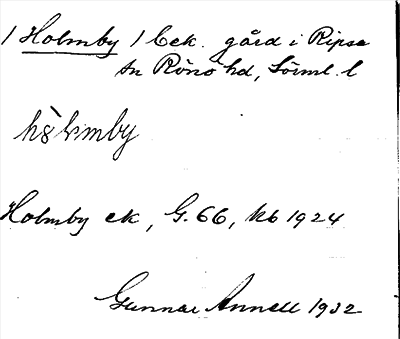 1 Holmby 1 bek. gård i Ripsa
sn Rönö hd, Sörml. l
Holmby ek, G. 66, kb 1924
Gunnar Annell 1932